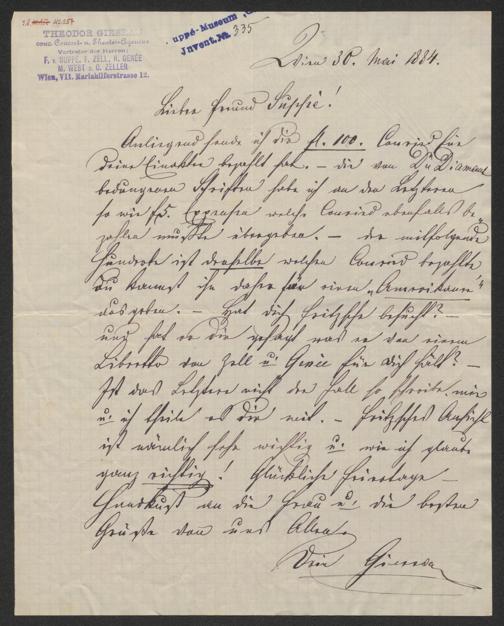 THEODOR GIES
conc. Concert- u. Theater-Agentur
Vertreter der Herren:
F. v. SUPPÉ, F. ZELL, R. GENÉE
M. WEST u. O. ZELLER
Wien, VII. Mariahilferstrasse 12.
uppé-Museum
Jnvent.№ 335
Wien 30. Mai 1884.
Lieber Freund Suppé!
Anliegend sende ich die fl. 100. Conried für
deine Einakter bezahlt hat. – die von Du Diamant
bedungenen Schriften habe ich an den Letzteren
so wie fl. welche Conried ebenfalls be-
zahlen mußte übergeben. – der mitfolgende
Hunderte ist derselbe welchen Conried bezahlte
Du kannst ihn daher für einen „Amerikaner"
ausgeben. – Hat dich Fritzsche besucht? –
und hat er dir gesagt was er von einem
Libretto von Zell u: Genée für dich hält? –
Ist das Letztere nicht der Fall so schreibe mir
u: ich theile es dir mit. – Fritzsches Ansicht
ist nämlich sehr wichtig u: wie ich glaube
ganz richtig! Glückliche Feiertage –
Handkuß an die Frau u: die besten
Grüße von uns Allen
Dein